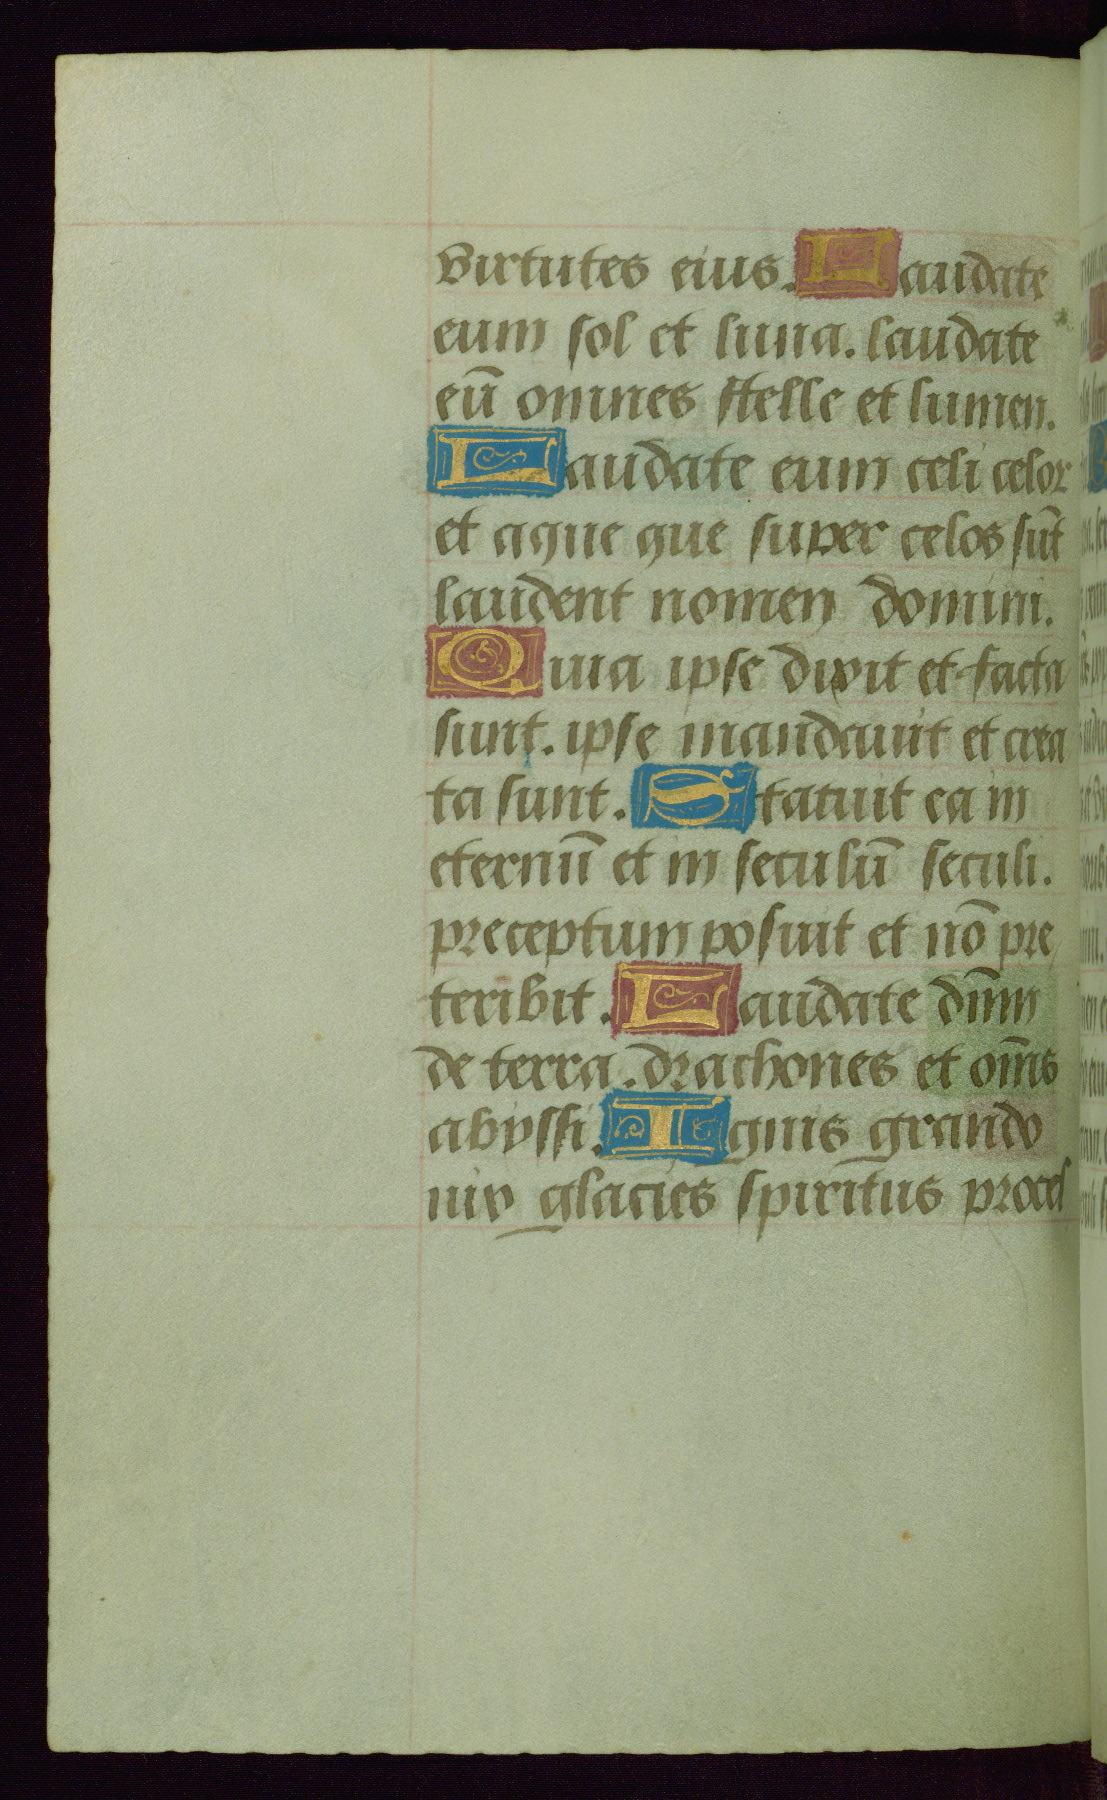 virtutes eius. Laudate
eum sol et luna. laudate
eū omnes stelle et lumen.
Laudate eum celi celoꝝ
et aque que super celos sūt
laudent nomen domini.
Quia ipse dixit et facta
sunt. ipse mandauit et crea
ta sunt. Statuit ea in
eternū et in seculū seculi.
preceptum posuit et nō pre
teribit. Laudate dn̄m
de terra. drachones et om̄s
abyssi. Ignis grando
nix glacies spiritus procel